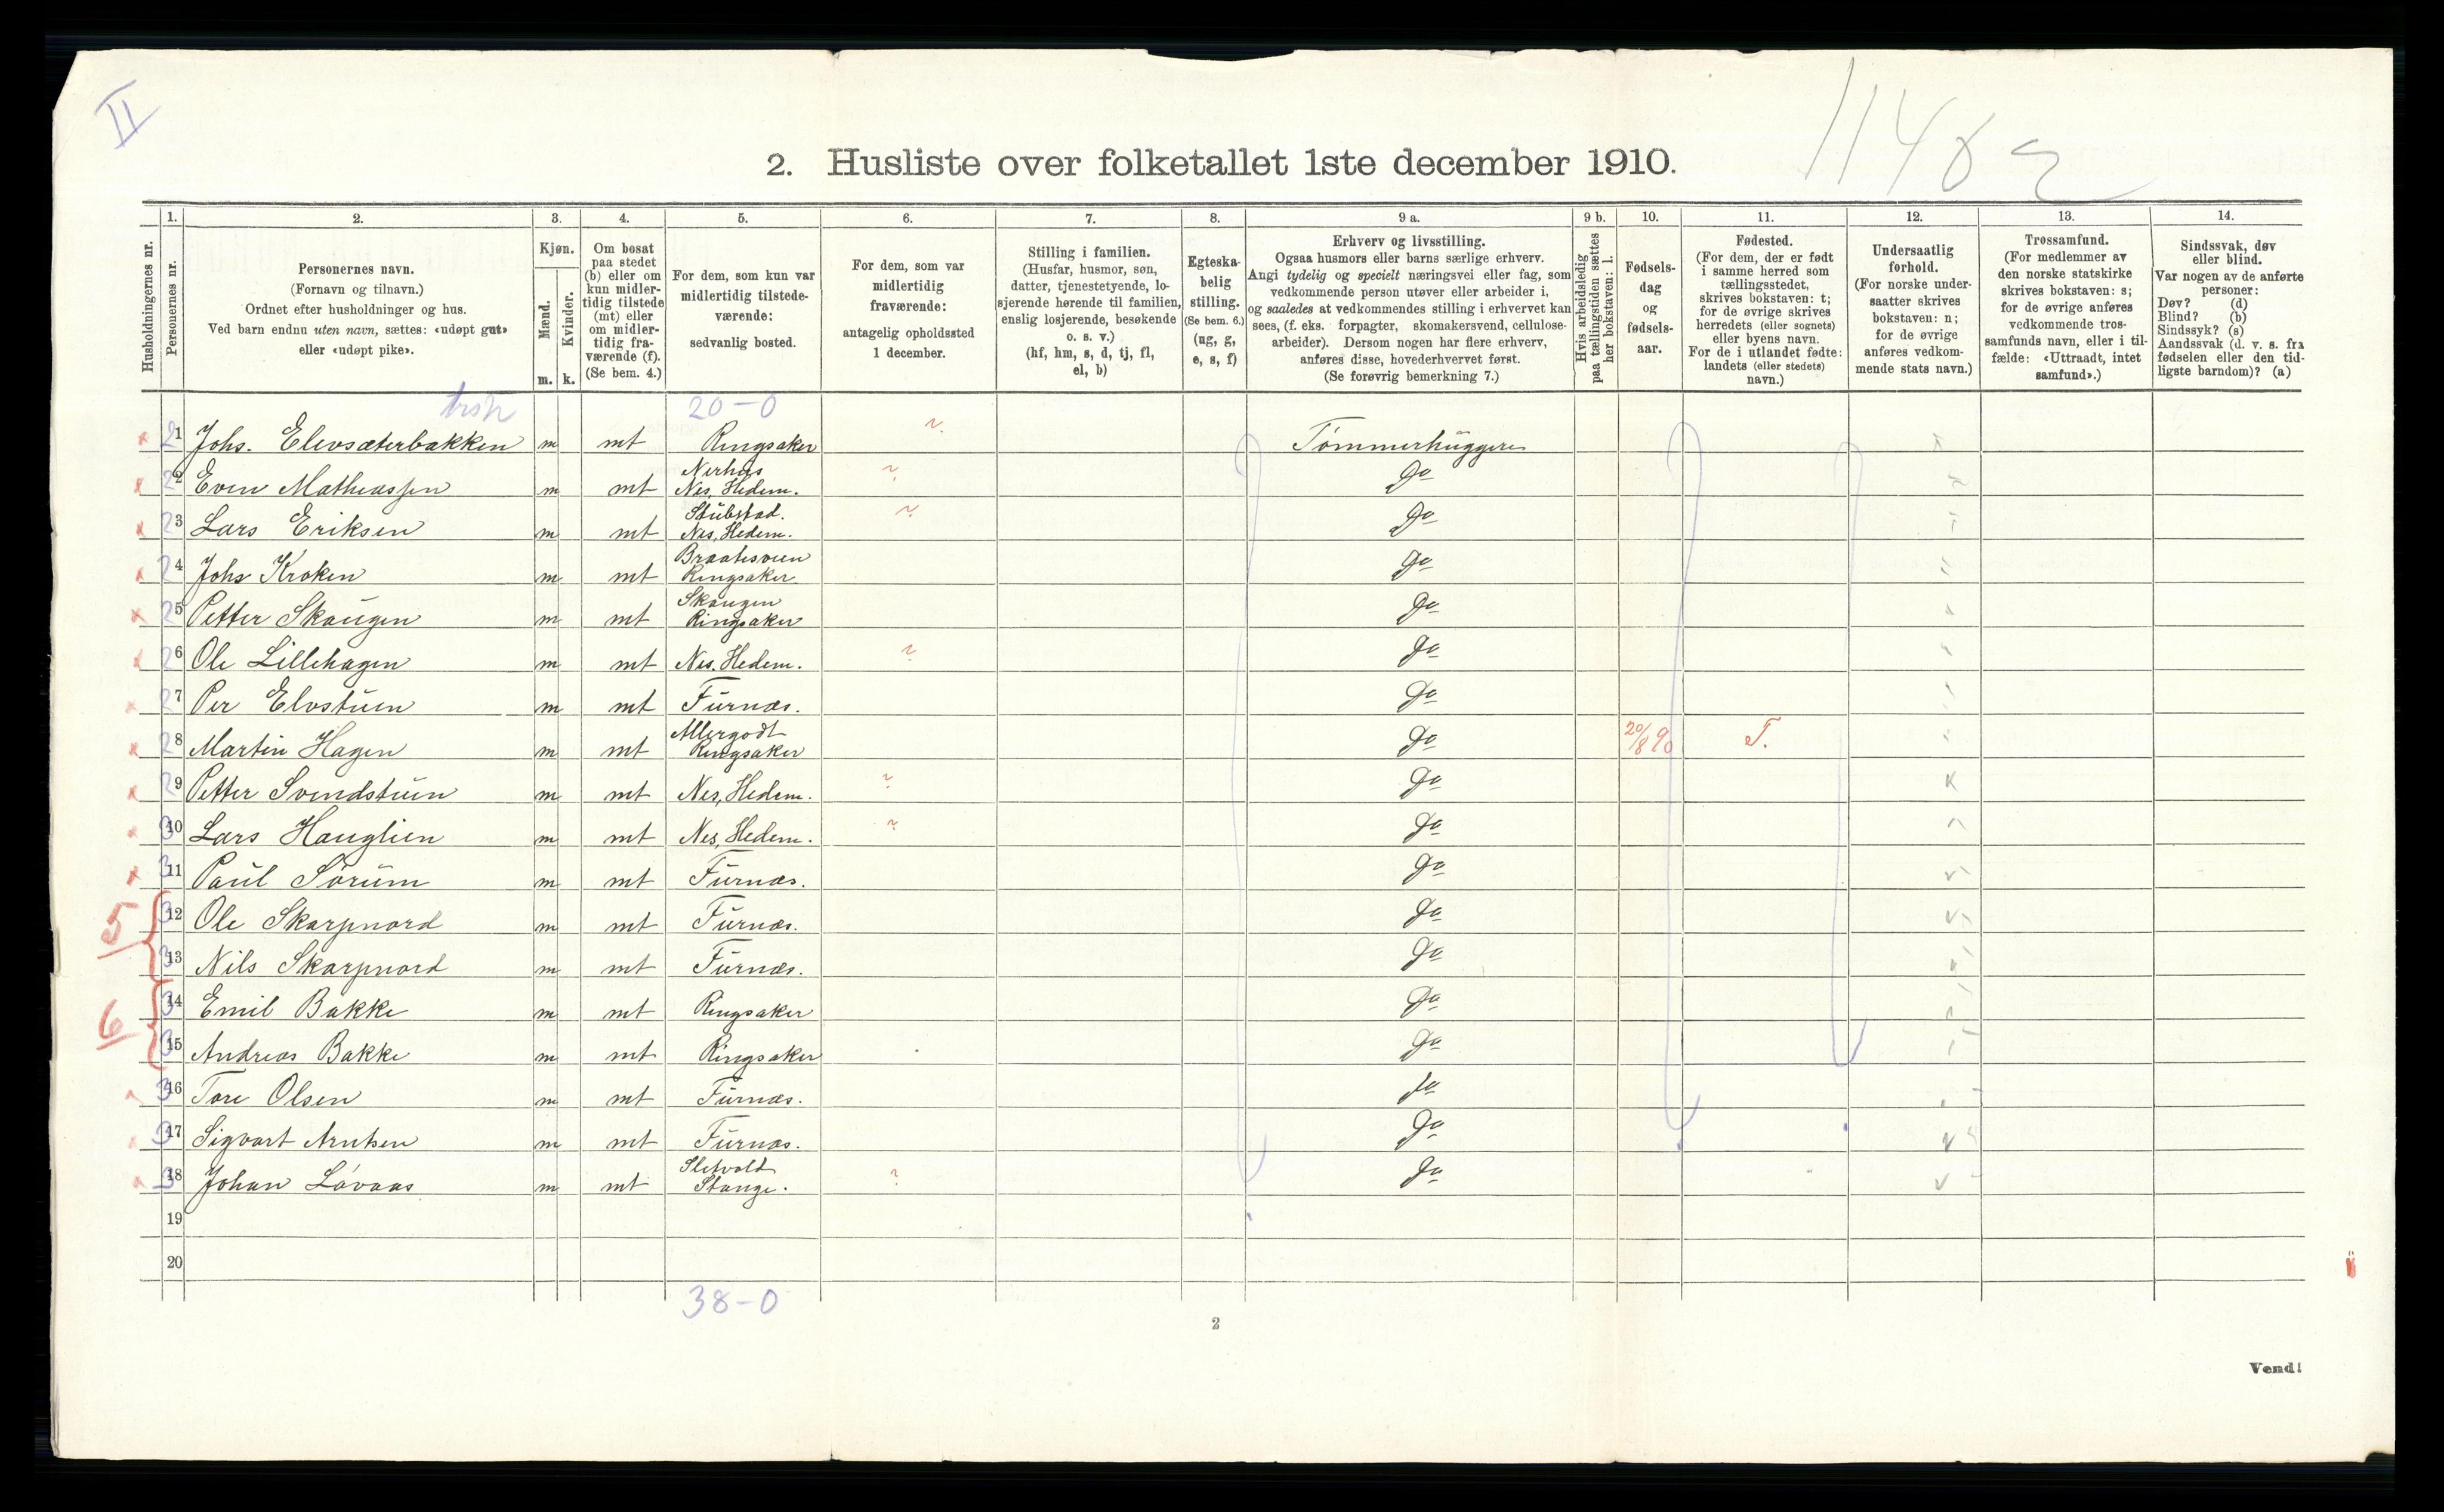 II
1148 2
2. Husliste over folketallet 1ste december 1910.
Husholdningernes nr.
1. Personernes nr.
2. Personernes navn. (Fornavn og tilnavn.) Ordnet efter husholdninger og hus. Ved barn endnu uten navn, sættes: «udøpt gut» eller «udøpt pike».
3. Kjøn. Mænd. m. Kvinder. k.
4. Om bosat paa stedet (b) eller om kun midlertidig tilstede (mt) eller om midlertidig fraværende (f). (Se bem. 4.)
5. For dem, som kun var midlertidig tilstedeværende: sedvanlig bosted.
6. For dem, som var midlertidig fraværende: antagelig opholdssted 1 december.
7. Stilling i familien. (Husfar, husmor, søn, datter, tjenestetyende, losjerende hørende til familien, enslig losjerende, besøkende o. s. v.) (hf, hm, s, d, tj, fl, el, b)
8. Egteskabelig stilling. (Se bem. 6.) (ug, g, e, s, f)
9 a. Erhverv og livsstilling. Ogsaa husmors eller barns særlige erhverv. Angi tydelig og specielt næringsvei eller fag, som vedkommende person utøver eller arbeider i, og saaledes at vedkommendes stilling i erhvervet kan sees, (f. eks. forpagter, skomakersvend, cellulosearbeider). Dersom nogen har flere erhverv, anføres disse, hovederhvervet først. (Se forøvrig bemerkning 7.)
9 b. Hvis arbeidsledig paa tællingstiden sættes her bokstaven: l.
10. Fødselsdag og fødselsaar.
11. Fødested. (For dem, der er født i samme herred som tællingsstedet, skrives bokstaven: t; for de øvrige skrives herredets (eller sognets) eller byens navn. For de i utlandet fødte: landets (eller stedets) navn.)
12. Undersaatlig forhold. (For norske undersaatter skrives bokstaven: n; for de øvrige anføres vedkommende stats navn.)
13. Trossamfund. (For medlemmer av den norske statskirke skrives bokstaven: s; for de øvrige anføres vedkommende trossamfunds navn, eller i tilfælde: «Uttraadt, intet samfund».)
14. Sindssvak, døv eller blind. Var nogen av de anførte personer: Døv? (d) Blind? (b) Sindssyk? (s) Aandssvak (d. v. s. fra fødselen eller den tidligste barndom)? (a)
20-0
1 Johs. Elevsæterbakken m mt Ringsaker Tømmerhuggere
2 Even Mathiassen m mt Nerhus Nes, Hedem. Do
3 Lars Eriksen m mt Stubstad. Nes, Hedem. Do
4 Johs Kroken m mt Braatesveen Ringsaker Do
5 Petter Skaugen m mt Skaugen Ringsaker Do
6 Ole Lillehagen m mt Nes. Hedem. Do
7 Per Elvstuen m mt Furnæs. Do
8 Martin Hagen m mt Allergodt Ringsaker Do 20/8 90 T.
9 Petter Svendstuen m mt Nes, Hedem. Do
10 Lars Hauglien m mt Nes, Hedem. Do
11 Paul Sørum m mt Furnæs. Do
5
12 Ole Skarpnord m mt Furnæs. Do
13 Nils Skarpnord m mt Furnæs. Do
6
14 Emil Bakke m mt Ringsaker Do
15 Andreas Bakke m mt Ringsaker Do
16 Tore Olsen m mt Furnæs. Do
17 Sigvart Arntsen m mt Furnæs. Do
18 Johan Løvaas m mt Sletvold Stange. Do
19
20
38-0
2
Vend!